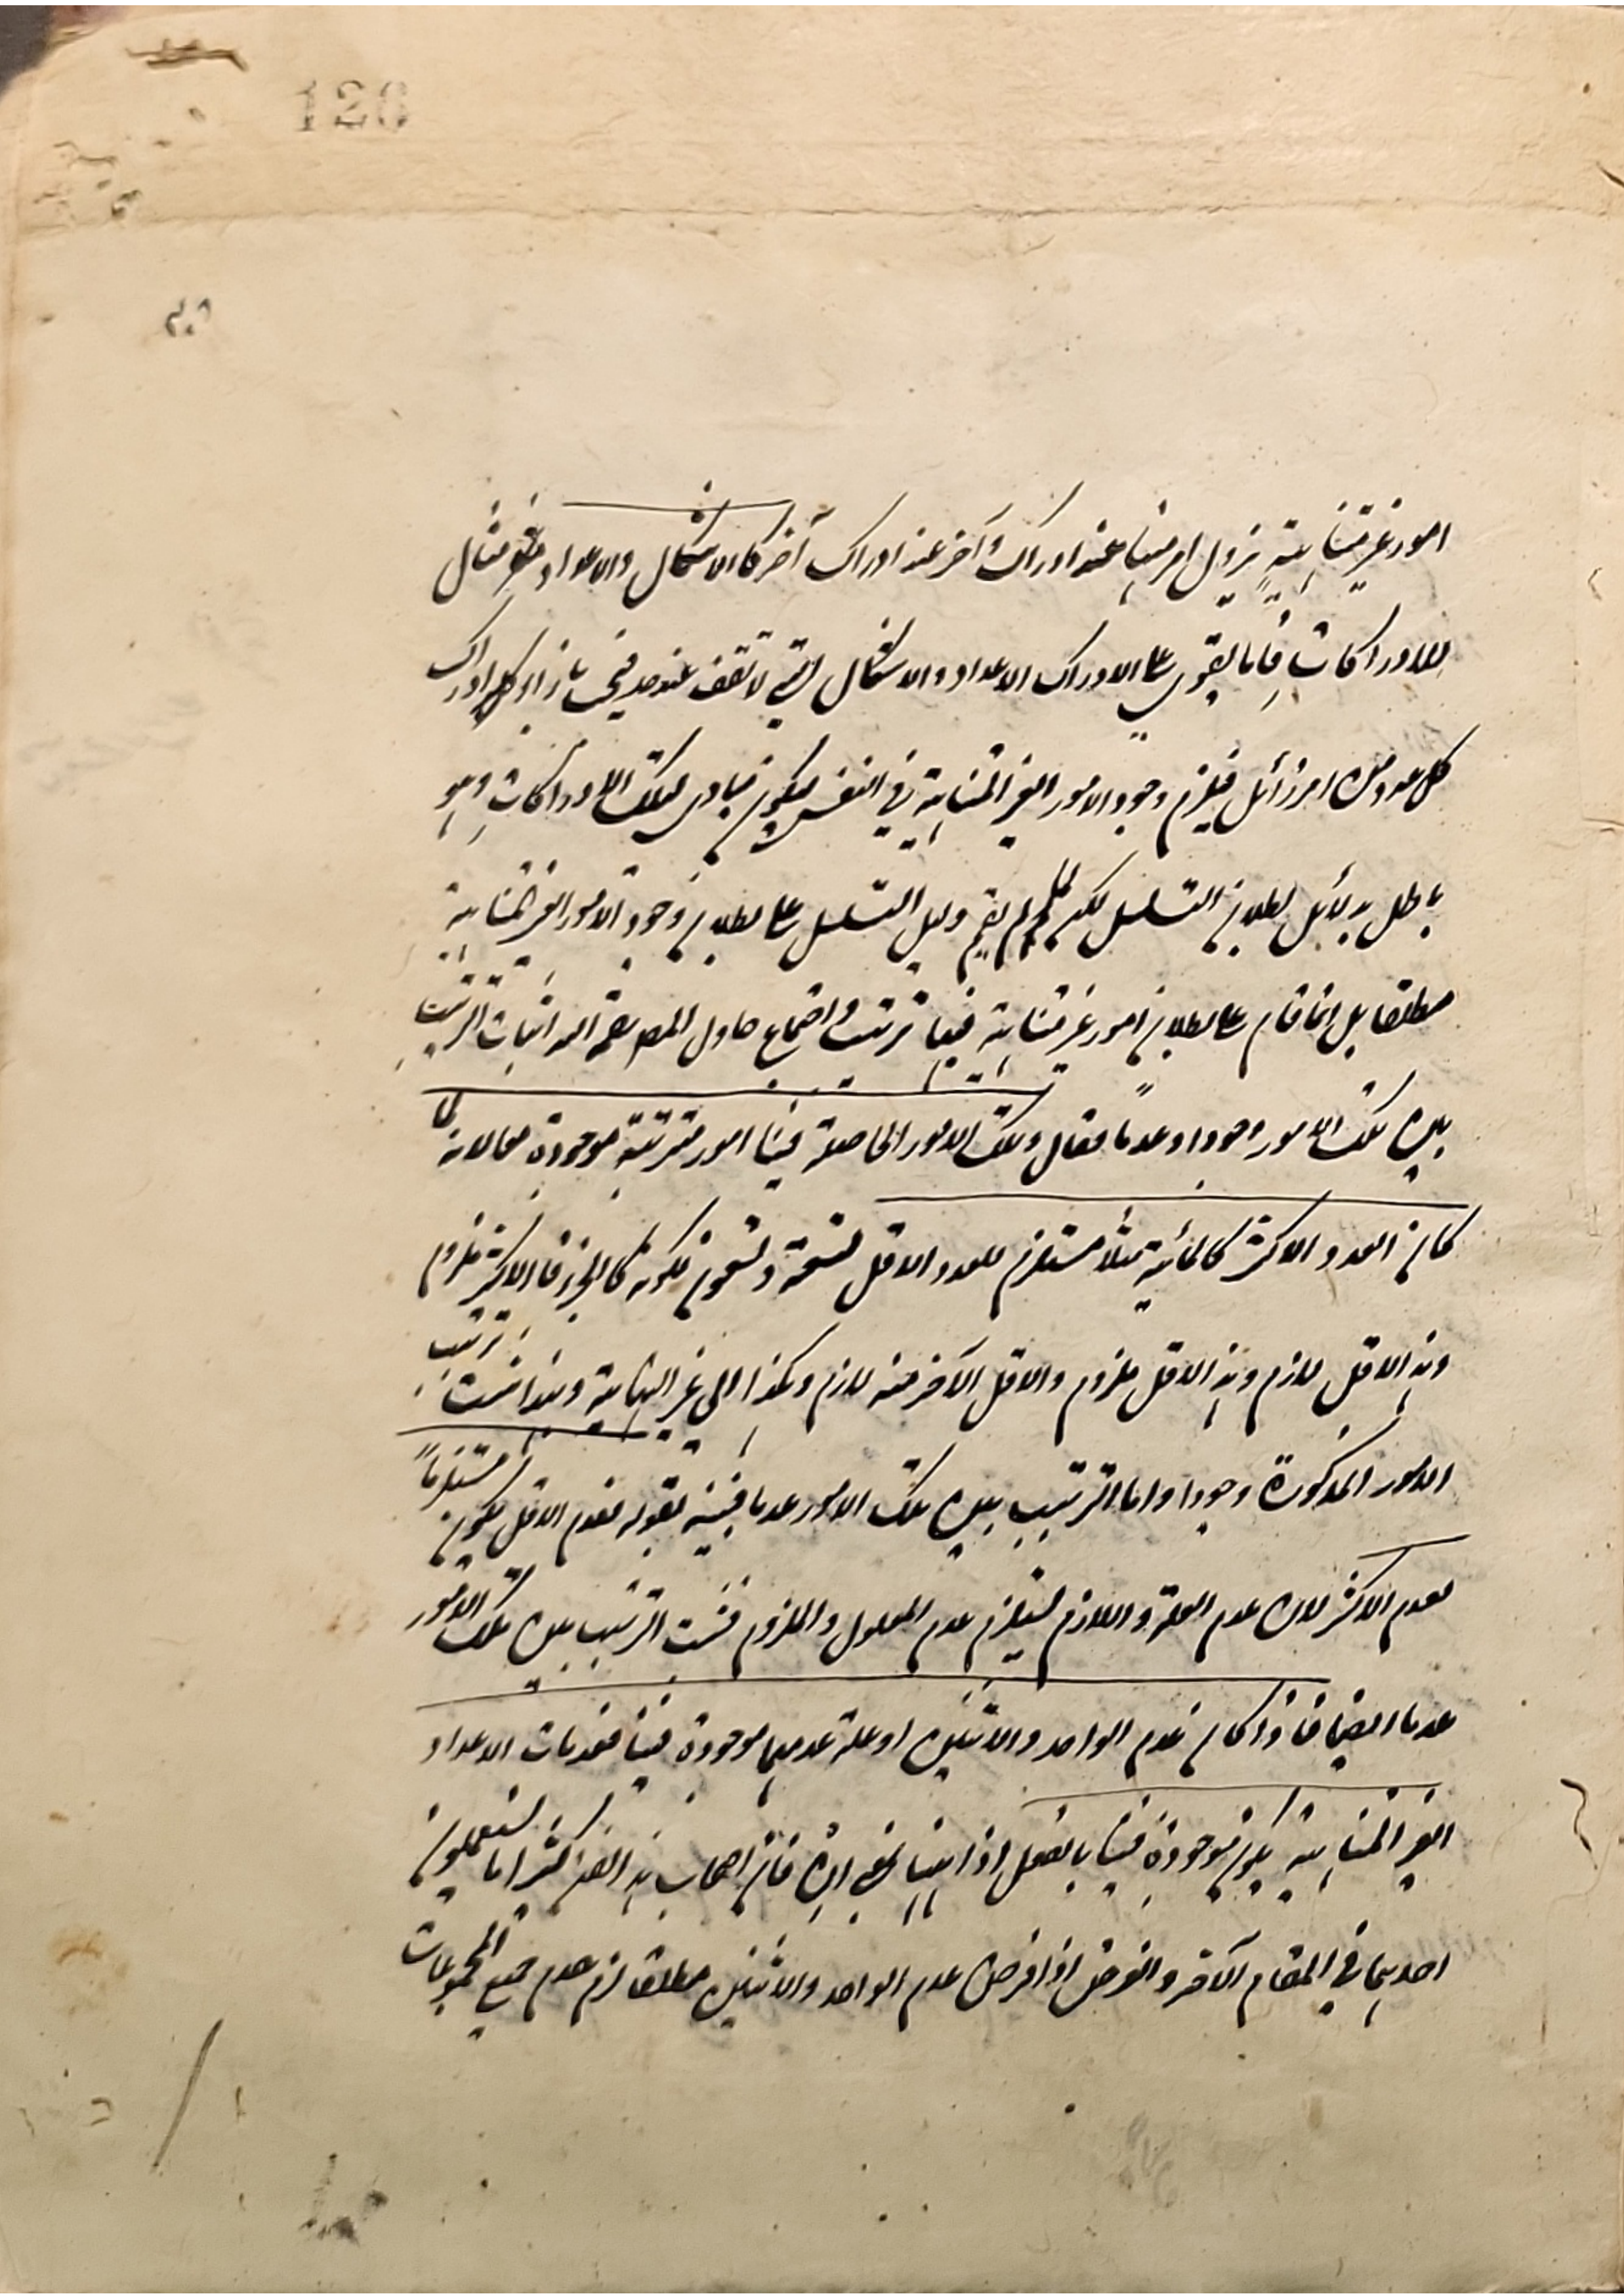 120
امور غير متناهية يزول امر منها عند ادراك وآخر عند ادراك آخر كالاشكال والاعداد مثال
للادراكات فانا نقوى على الادراك الاعداد والاشكال التي لا تقف عند حد فيجب بازاء كل ادراك
كل عدد منها امر زائل فيلزم وجود الامور الغير المتناهية في النفس ليكون مبادى لتلك الادراكات وهو
باطل بدلائل بطلان التسلسل لكن لما لم يقم دليل التسلسل على بطلان وجود الامور الغير المتناهية
مطلقا بل انما قام على بطلان امور غير متناهية فيها ترتب واجتماع حاول المصنف رحمه الله اثبات الترتيب
بين تلك الامور وجودا وعدما فقال وتلك الامور الحاصلة فينا امور مترتبة موجودة معا لانه لما
كان العدد الاكثر كالمائة مثلا مستلزم للعدد الاقل كتسعة وتسعون لكونه كالجزء فالاكثر ملزوم
وهذا الاقل لازم وهذا الاقل ملزوم والاقل الآخر منه لازم وهكذا الى غير النهاية وهذا اثبت ترتب
الامور المذكورة وجودا واما الترتيب بين تلك الامور عدما فبينه بقوله فعدم الاقل يكون مستلزماً
لعدم الاكثر لان عدم العلة واللازم يستلزم عدم المعلول والملزوم فثبت الترتيب بين تلك الامور
عدما ايضا فاذا كان عدم الواحد والاثنين او علة عدمهما موجودة فينا فعدمات الاعداد
الغير المتناهية يكون موجودة فينا بالفعل اذا بمعنى ان فان اصحاب هذا الفن كثيرا ما يستعملون
احديهما في المقام الآخر والغرض اذا فرض عدم الواحد والاثنين مطلقا لزم عدم جميع المجموعات